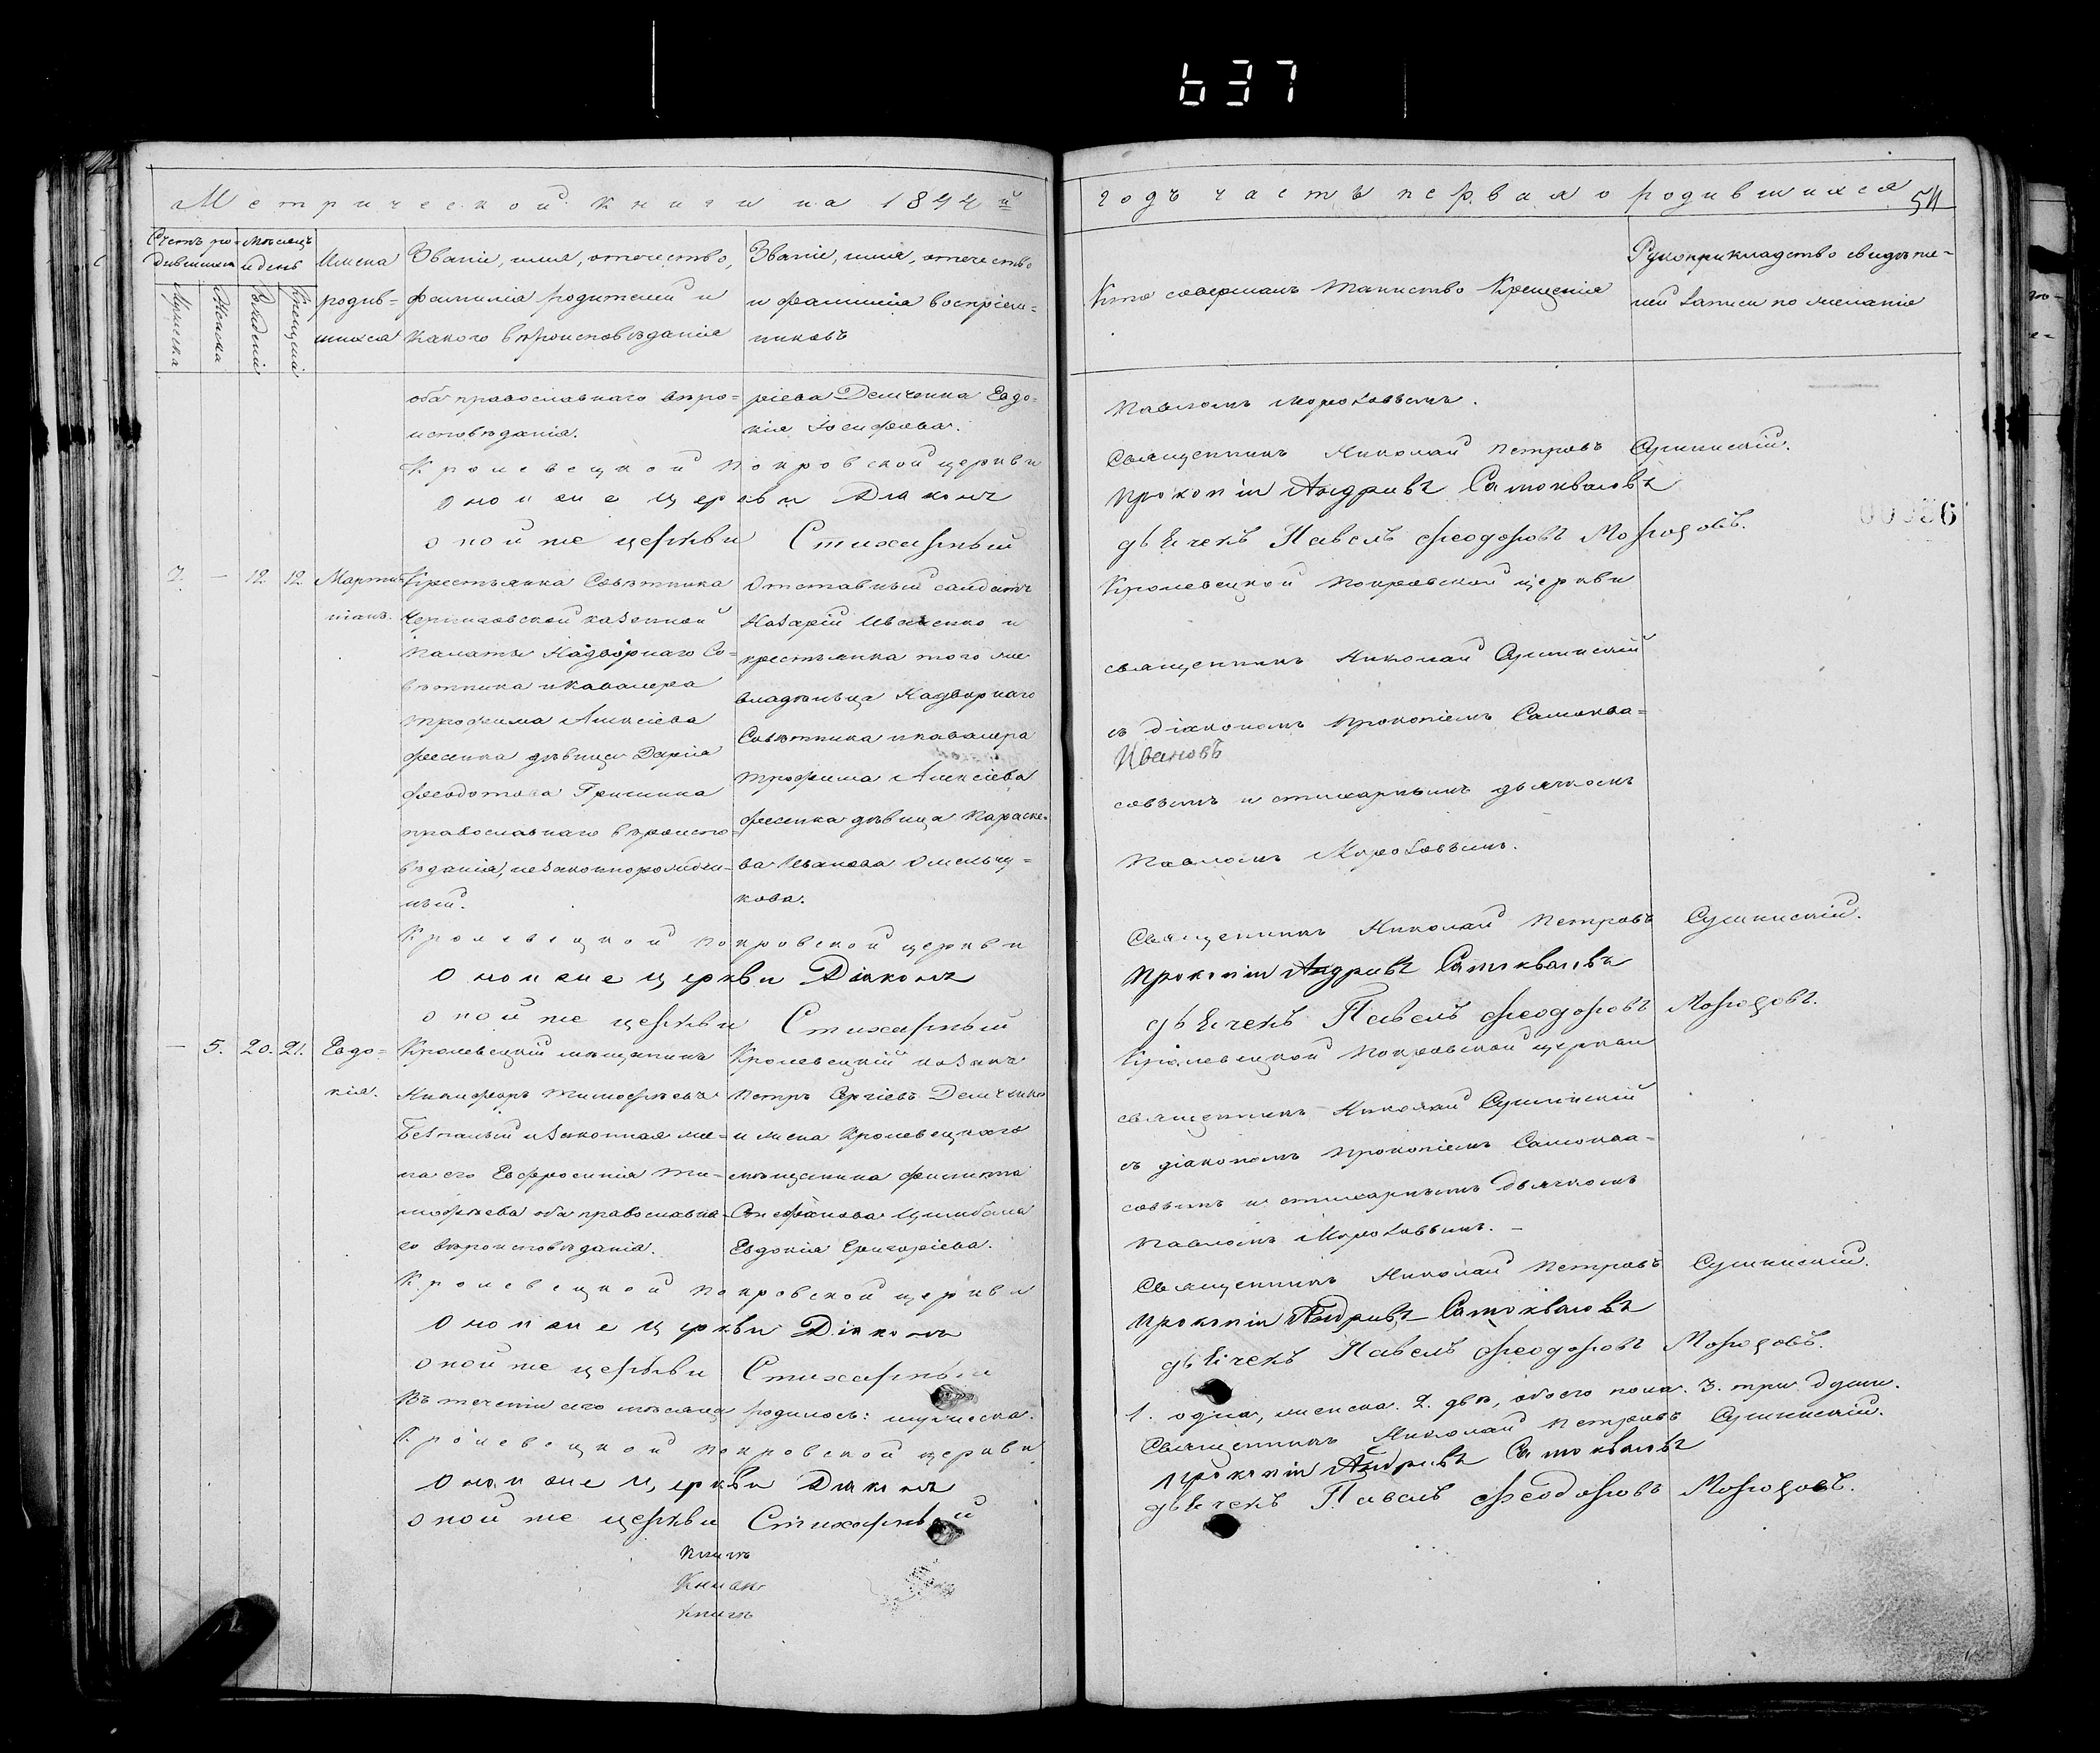 637
Метрической книги на 1842й
годъ часть первая о родившихся
54
Счетъ ро-
дившихся
Мужеска
Женска
Мѣсяцъ
и день
Рожденія
Крещенія
Имена
родив-
шихся
Званіе, имя, отечество,
фамилія родителей и
какого вѣроисповѣданія
Званіе, имя, отечество
и фамилія воспріем-
никовъ
Кто совершалъ таинство Крещенія
Рукоприкладство свидѣте-
лей записи по желанію
оба православнаго вѣро-
исповѣданія.
ріева Демченка Евдо-
кія Іосифова.
Павломъ Морозовымъ.
Кролевецкой Покровской церкви
Священникъ Николай Петровъ Сушинскій.
Оной же церкви Діаконъ
Прокопій Андріевъ Самоквасовъ
оной же церкви Стихарный
дьячекъ Павелъ Феодоровъ Морозовъ.
00056
— 12. 12.
Марти-
ніанъ.
Крестьянка Совѣтника
Черниговской казенной
палаты Надворнаго Со-
вѣтника и кавалера
Трофима Алексіева
Фесенка дѣвица Дарія
Феодотова Гришина
православнаго вѣроиспо-
вѣданія, незаконнорожден-
ный.
Отставный солдатъ
Назарій Иваненко и
крестьянка того же
владѣльца Надворнаго
Совѣтника и кавалера
Трофима Алексіева
Фесенка дѣвица Параске-
ва Иванова Омельчу-
кова.
Кролевецкой Покровской церкви
священникъ Николай Сушинскій
съ діакономъ Прокопіемъ Самоква-
Ивановъ
совымъ и стихарнымъ дьячкомъ
Павломъ Морозовымъ.
Кролевецкой Покровской церкви
Священникъ Николай Петровъ Сушинскій.
Оной же церкви Діаконъ
Прокопій Андріевъ Самоквасовъ
оной же церкви Стихарный
дьячекъ Павелъ Феодоровъ Морозовъ.
— 5. 20. 21.
Евдо-
кія.
Кролевецкій мещанинъ
Никифоръ Тимофѣевъ
Безпалый и законная же-
на его Евфросинія Ти-
мофѣева оба православна-
го вѣроисповѣданія.
Кролевецкій козакъ
Петръ Сергіевъ Демченко
и жена Кролевецкаго
мѣщанина Филиппа
Стефанова Цимбала
Евдокія Григоріева.
Кролевецкой Покровской церкви
священникъ Николай Сушинскій
съ діакономъ Прокопіемъ Самоква-
совымъ и стихарнымъ дьячкомъ
Павломъ Морозовымъ. –
Кролевецкой Покровской церкви
Священникъ Николай Петровъ Сушинскій.
Оной же церкви Діаконъ
Прокопій Андріевъ Самоквасовъ
оной же церкви Стихарный
дьячекъ Павелъ Феодоровъ Морозовъ.
Въ теченіи сего мѣсяца родилось: мужеска.
1. одна, женска. 2. двѣ, обоего пола. 3. три души.
Кролевецкой Покровской церкви
Священникъ Николай Петровъ Сушинскій.
Оной же церкви Діаконъ
Прокопій Андріевъ Самоквасовъ
оной же церкви Стихарный
дьячекъ Павелъ Феодоровъ Морозовъ.